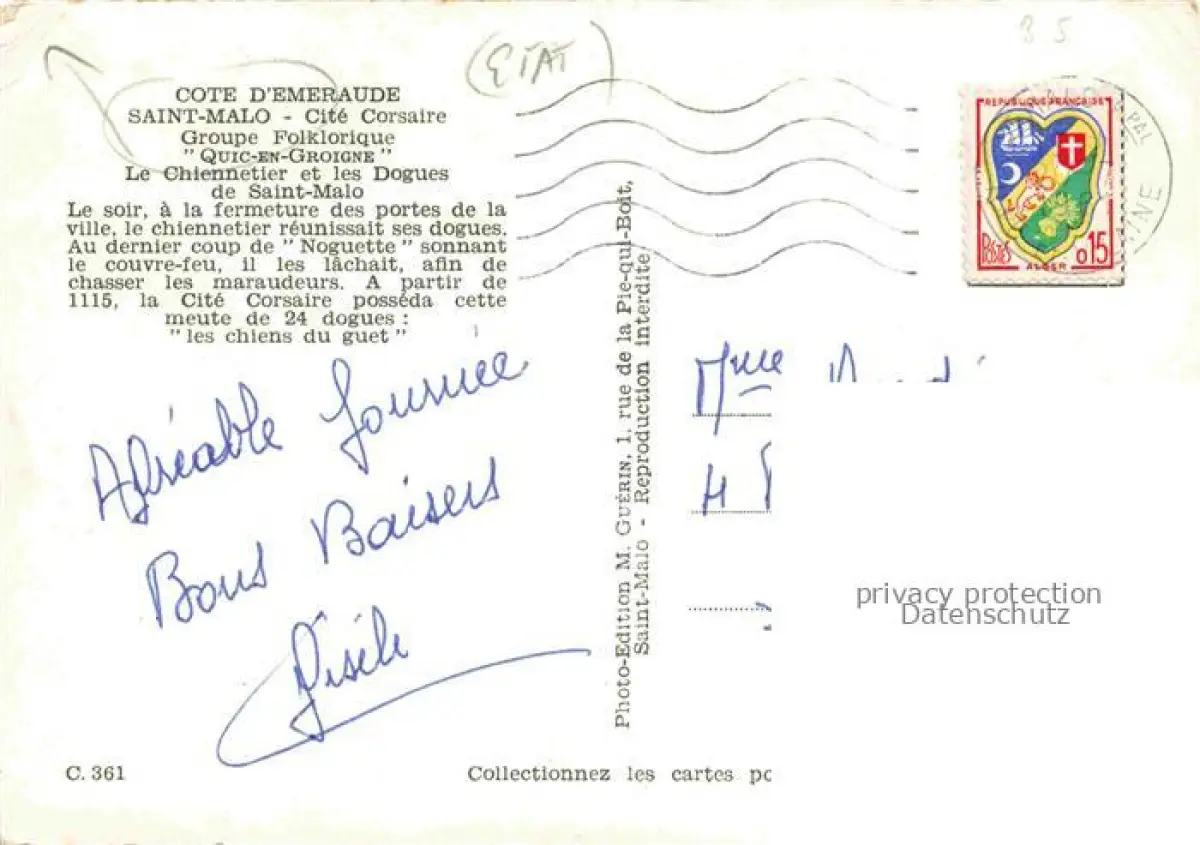 (ETAT)
85
COTE D'EMERAUDE
SAINT-MALO - Cité Corsaire
Groupe Folklorique
"QUIC-EN-GROIGNE"
Le Chiennetier et les Dogues
de Saint-Malo
Le soir, à la fermeture des portes de la
ville, le chiennetier réunissait ses dogues.
Au dernier coup de "Noguette" sonnant
le couvre-feu, il les lâchait, afin de
chasser les maraudeurs. A partir de
1115, la Cité Corsaire posséda cette
meute de 24 dogues :
"les chiens du guet"
Agréable Journée
Bons Baisers
Gisèle
C. 361
Photo-Edition M. GUÉRIN, 1, rue de la Pie-qui-Boit,
Saint-Malo - Reproduction interdite
Collectionnez les cartes
REPUBLIQUE FRANÇAISE
POSTES
0,15
ALGER
Mme
privacy protection
Datenschutz